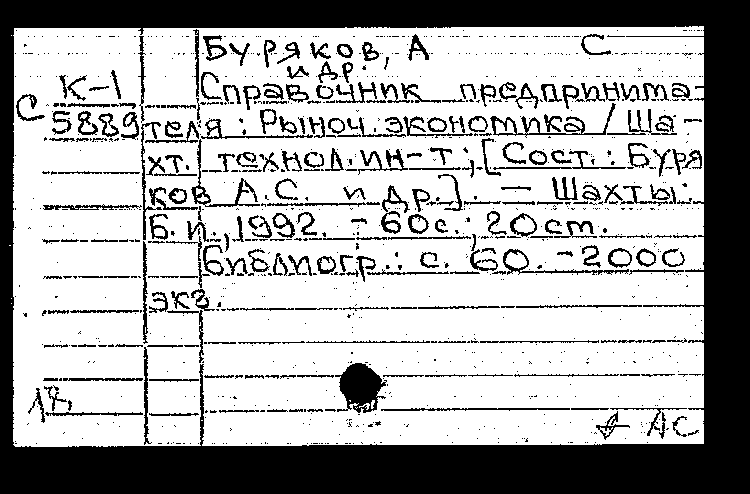 Буряков, А С
и др.
К-1 Справочник предпринима-
С 5889 теля : Рыноч. экономика / Ша-
хт. технол. ин-т ; [Сост. : Буря
ков А.С. и др.]. — Шахты :
Б.и., 1992. - 60с. ; 20 ст.
Библиогр.: с. 60. - 2000
экз.
АС